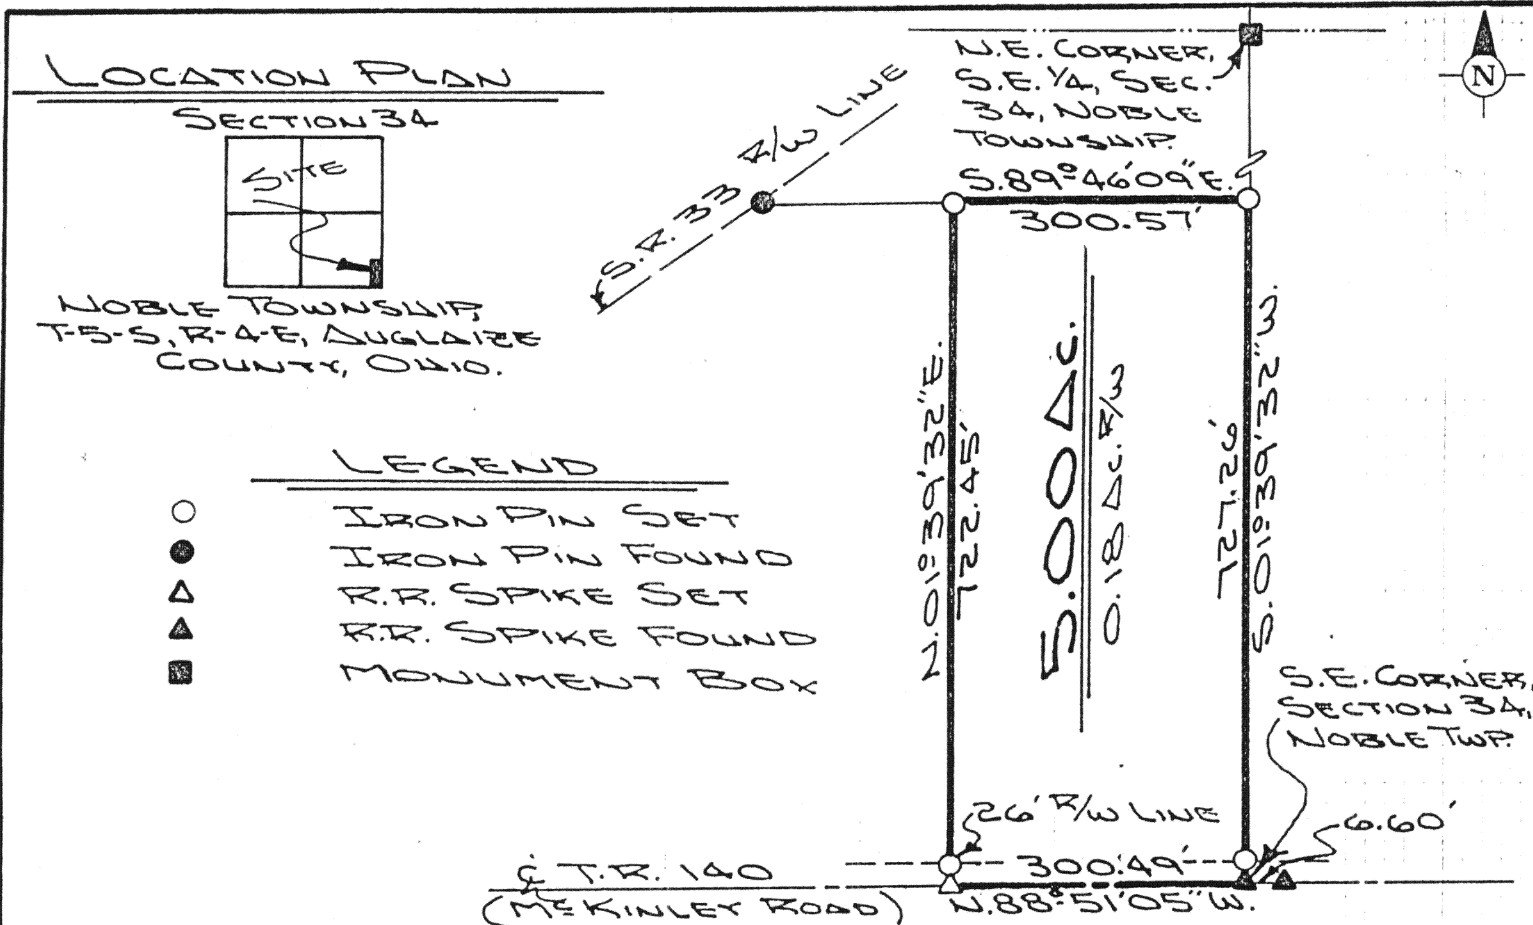 LOCATION PLAN
SECTION 34
SITE
NOBLE TOWNSHIP,
T-5-S, R-4-E, AUGLAIZE
COUNTY, OHIO.
LEGEND
IRON PIN SET
IRON PIN FOUND
R.R. SPIKE SET
R.R. SPIKE FOUND
MONUMENT BOX
S.R. 33 R/W LINE
N.E. CORNER,
S.E. 1/4, SEC.
34, NOBLE
TOWNSHIP.
N
S.89°46'09"E.
300.57'
N.01°39'32"E.
722.45'
5.00 Ac.
0.18 Ac. R/W
727.26'
S.01°39'32"W.
S.E. CORNER,
SECTION 34,
NOBLE TWP.
26' R/W LINE
6.60'
℄ T.R. 140
(McKINLEY ROAD)
300.49'
N.88°51'05"W.